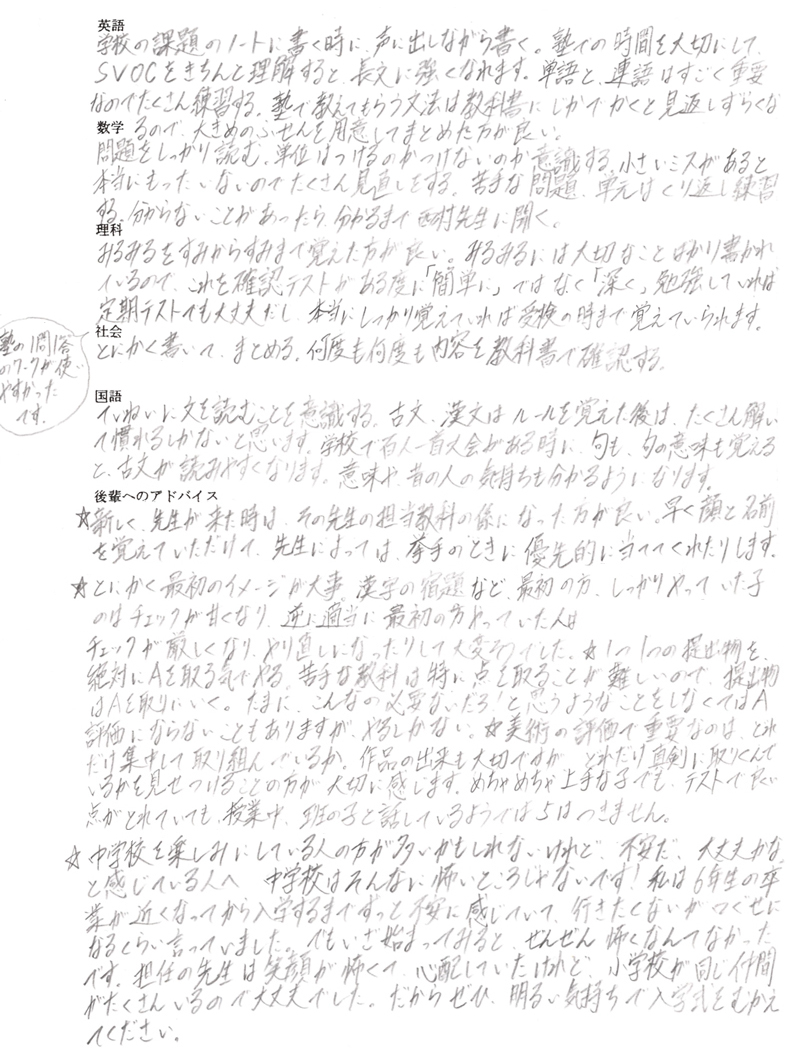 英語
学校の課題のノートに書く時に、声に出しながら書く。塾での時間を大切にして、
SVOCをきちんと理解すると、長文に強くなれます。単語と、連語はすごく重要
なのでたくさん練習する。塾で教えてもらう文法は教科書にじかでかくと見返しずらくな
数学
るので、大きめのふせんを用意してまとめた方が良い。
問題をしっかり読む。単位はつけるのかつけないのか意識する。小さいミスがあると
本当にもったいないのでたくさん見直しをする。苦手な問題、単元はくり返し練習
する。分からないことがあったら、分かるまで西村先生に聞く。
理科
みるみるをすみからすみまで覚えた方が良い。みるみるには大切なことばかり書かれ
ているので、これを確認テストがある度に「簡単に」ではなく「深く」勉強していれば
定期テストでも大丈夫だし、本当にしっかり覚えていれば受検の時まで覚えていられます。
社会
とにかく書いて、まとめる。何度も何度も内容を教科書で確認する。
塾の1問1答
のワークが使い
やすかった
です。
国語
ていねいに文を読むことを意識する。古文、漢文はルールを覚えた後は、たくさん解い
て慣れるしかないと思います。学校で百人一首大会がある時に、句も、句の意味も覚える
と、古文が読みやすくなります。意味や、昔の人の気持ちも分かるようになります。
後輩へのアドバイス
☆新しく、先生が来た時は、その先生の担当教科の係になった方が良い。早く顔と名前
を覚えていただけて、先生によっては、挙手のときに優先的に当ててくれたりします。
☆とにかく最初のイメージが大事。漢字の宿題など、最初の方、しっかりやっていた子
のはチェックが甘くなり、逆に適当に最初の方やっていた人は
チェックが厳しくなり、やり直しになったりして大変そうでした。☆1つ1つの提出物を、
絶対にAを取る気でやる。苦手な教科は特に点を取ることが難しいので、提出物
はAを取りにいく。たまに、こんなの必要ないだろ!と思うようなことをしなくてはA
評価にならないこともありますが、やるしかない。☆美術の評価で重要なのは、どれ
だけ集中して取り組んでいるか。作品の出来も大切ですが、どれだけ真剣に取りくんで
いるかを見せつけることの方が大切に感じます。めちゃめちゃ上手な子でも、テストで良い
点がとれていても、授業中、班の子と話しているようでは5はつきません。
☆中学校を楽しみにしている人の方が多いかもしれないけれど、不安だ、大丈夫かな
と感じている人へ 中学校はそんなに怖いところじゃないです!私は6年生の卒
業が近くなってから入学するまでずっと不安に感じていて、行きたくないが口ぐせに
なるくらい言っていました。でもいざ始まってみると、ぜんぜん怖くなんてなかった
です。担任の先生は笑顔が怖くて、心配していたけれど、小学校が同じ仲間
がたくさんいるので大丈夫でした。だからぜひ、明るい気持ちで入学式をむかえ
てください。